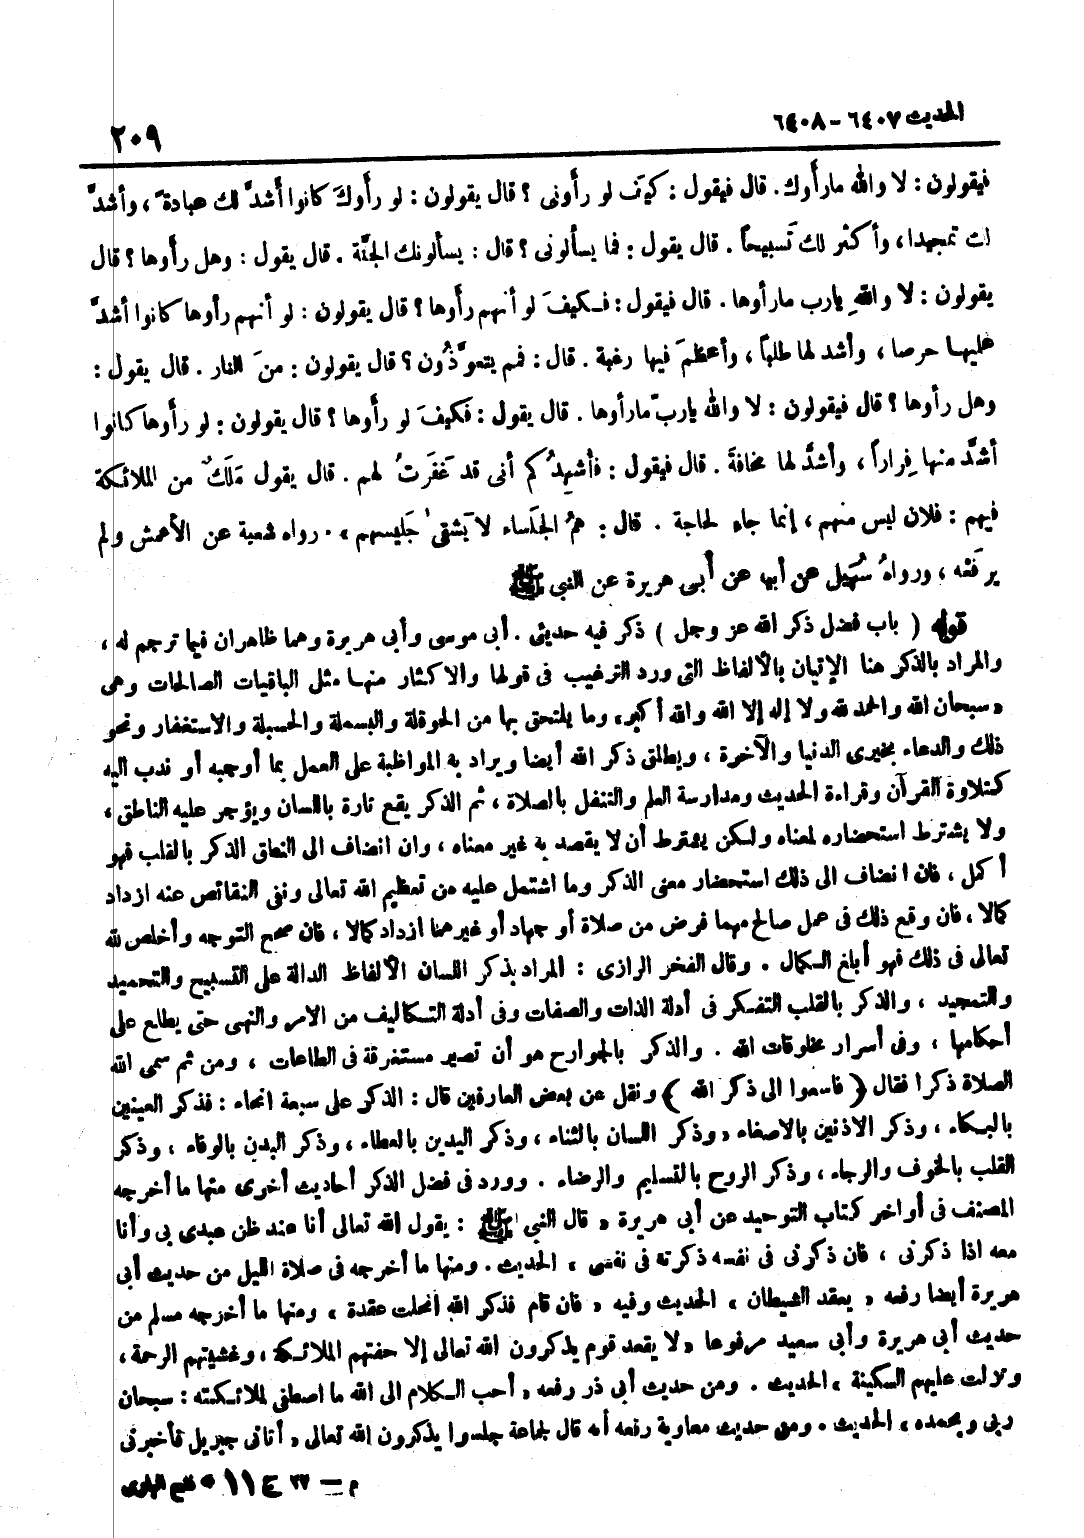 الحديث ٦٤٠٧ - ٦٤٠٨
٢٠٩
فيقولون : لا والله مارأوك . قال فيقول : كيف لو رأونى ؟ قال يقولون : لو رأوكَ كانوا أشدَّ لك عبادةً ، وأشدَّ
لك تمجيدا ، وأكثر لك تَسبيحاً . قال يقول : فما يسألونى ؟ قال : يسألونك الجنَّة . قال يقول : وهل رأوها ؟ قال
يقولون : لا واللهِ يارب مارأوها . قال فيقول : فكيفَ لو أنهم رأوها ؟ قال يقولون : لو أنهم رأوها كانوا أشدَّ
عليها حرصا ، وأشد لها طلباً ، وأعظمَ فيها رغبة . قال : فمم يتعوَّذُون ؟ قال يقولون : منَ النار . قال يقول :
وهل رأوها ؟ قال فيقولون : لا والله يارب مارأوها . قال يقول : فكيفَ لو رأوها ؟ قال يقولون : لو رأوها كانوا
أشدَّ منها فِراراً ، وأشدَّ لها مخافةً . قال فيقول : فأشهِدُكم أنى قد غَفَرتُ لهم . قال يقول مَلَكٌ من الملائكة
فيهم : فلان ليس منهم ، إنما جاء لحاجة . قال : همُ الجلَساء لا يَشقىٰ جَليسهم » . رواه شعبة عن الأعمش ولم
يرفَعْه ، ورواهُ سُهَيل عن أبيه عن أبى هريرة عن النبى ﷺ
قوله ( باب فضل ذكر الله عز وجل ) ذكر فيه حديثى . أبى موسى وأبى هريرة وهما ظاهران فيما ترجم له ،
والمراد بالذكر هنا الإتيان بالألفاظ التى ورد الترغيب فى قولها والاكثار منها مثل الباقيات الصالحات وهى
« سبحان الله والحمد لله ولا إله إلا الله والله أكبر » وما يلتحق بها من الحوقلة والبسملة والحسبلة والاستغفار ونحو
ذلك والدعاء بخيرى الدنيا والآخرة ، ويطلق ذكر الله أيضا ويراد به المواظبة على العمل بما أوجبه أو ندب اليه
كتلاوة القرآن وقراءة الحديث ومدارسة العلم والتنفل بالصلاة ، ثم الذكر يقع تارة باللسان ويؤجر عليه الناطق ،
ولا يشترط استحضاره لمعناه ولكن يشترط أن لا يقصد به غير معناه ، وان انضاف الى النطق الذكر بالقلب فهو
أكمل ، فان انضاف الى ذلك استحضار معنى الذكر وما اشتمل عليه من تعظيم الله تعالى ونفى النقائص عنه ازداد
كمالا ، فان وقع ذلك فى عمل صالح مهما فرض من صلاة أو جهاد أو غيرهما ازداد كمالا ، فان صحح التوجه وأخلص لله
تعالى فى ذلك فهو أبلغ الكمال . وقال الفخر الرازى : المراد بذكر اللسان الألفاظ الدالة على التسبيح والتحميد
والتمجيد ، والذكر بالقلب التفكر فى أدلة الذات والصفات وفى أدلة التكاليف من الامر والنهى حتى يطلع على
أحكامها ، وفى أسرار مخلوقات الله . والذكر بالجوارح هو أن تصير مستغرقة فى الطاعات ، ومن ثم سمى الله
الصلاة ذكرا فقال ﴿ فاسعوا الى ذكر الله ﴾ ونقل عن بعض العارفين قال : الذكر على سبعة انحاء : فذكر العينين
بالبكاء ، وذكر الاذنين بالاصغاء ، وذكر اللسان بالثناء ، وذكر اليدين بالعطاء ، وذكر البدن بالوفاء ، وذكر
القلب بالخوف والرجاء ، وذكر الروح بالتسليم والرضاء . وورد فى فضل الذكر أحاديث أخرى منها ما أخرجه
المصنف فى أواخر كتاب التوحيد عن أبى هريرة « قال النبى ﷺ : يقول الله تعالى أنا عند ظن عبدى بى وأنا
معه اذا ذكرنى ، فان ذكرنى فى نفسه ذكرته فى نفسى » الحديث . ومنها ما أخرجه فى صلاة الليل من حديث أبى
هريرة أيضا رفعه « يعقد الشيطان » الحديث وفيه « فان قام فذكر الله انحلت عقدة » ومنها ما أخرجه مسلم من
حديث أبى هريرة وأبى سعيد مرفوعا « لا يقعد قوم يذكرون الله تعالى إلا حفتهم الملائكة ، وغشيتهم الرحمة ،
ونزلت عليهم السكينة » الحديث . ومن حديث أبى ذر رفعه « أحب الكلام الى الله ما اصطفى لملائكته : سبحان
ربى وبحمده » الحديث . ومن حديث معاوية رفعه أنه قال لجماعة جلسوا يذكرون الله تعالى « أتانى جبريل فأخبرنى
م — ٢٧ ج ١١ * فتح البارى